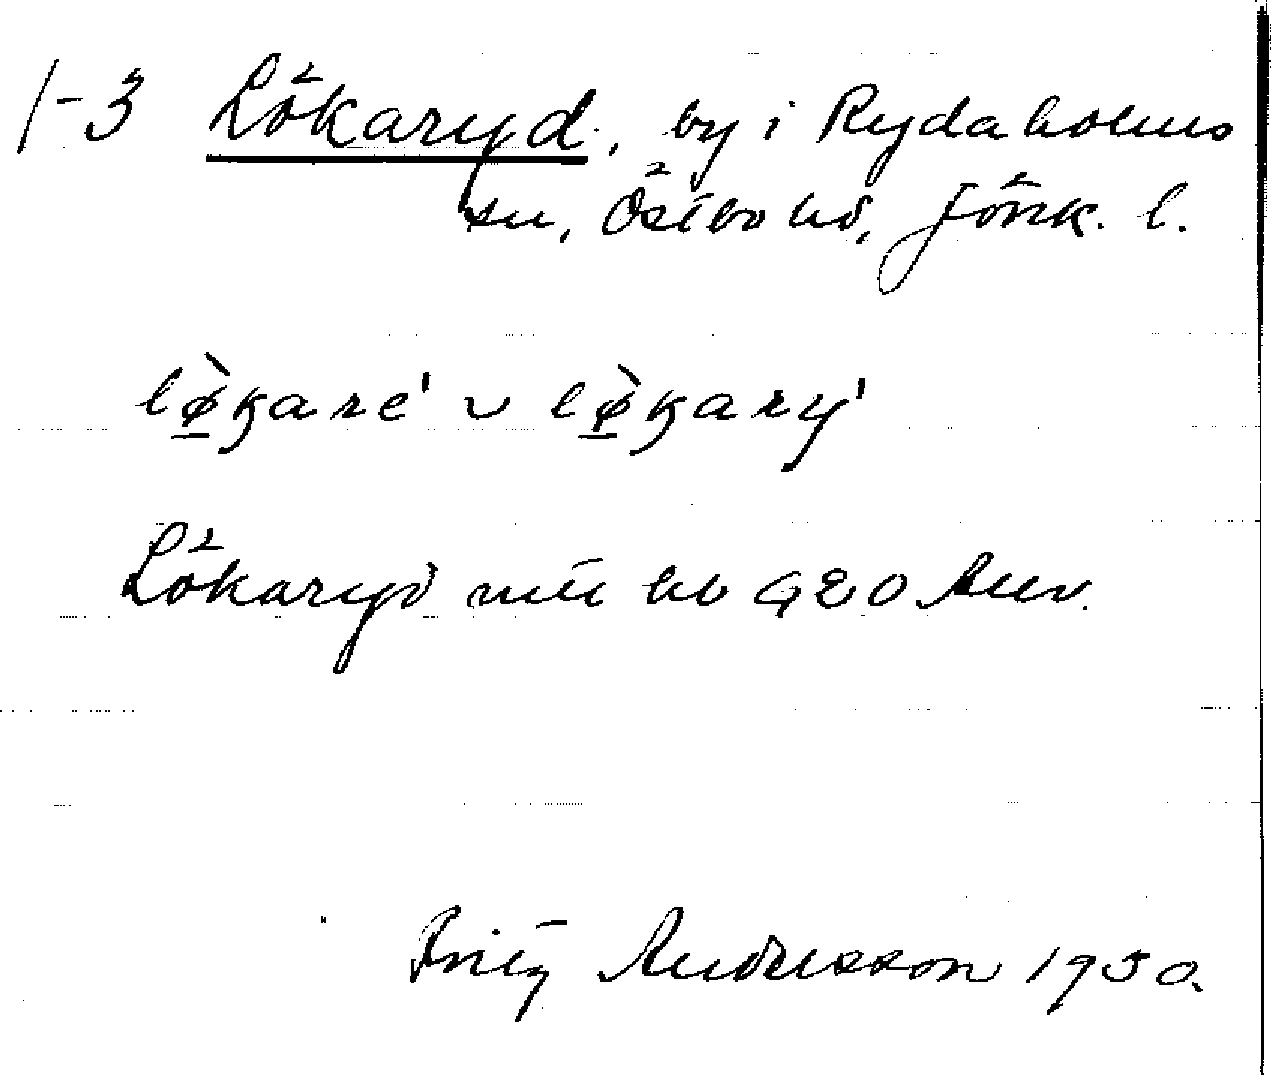 1-3 Lökaryd, by i Rydaholms
sn, Östbo hd, Jönk. l.
lø̀karé' ~ lø̀karý'
Lökaryd mtl hb 420 Anv.
Fritz Andersson 1930.